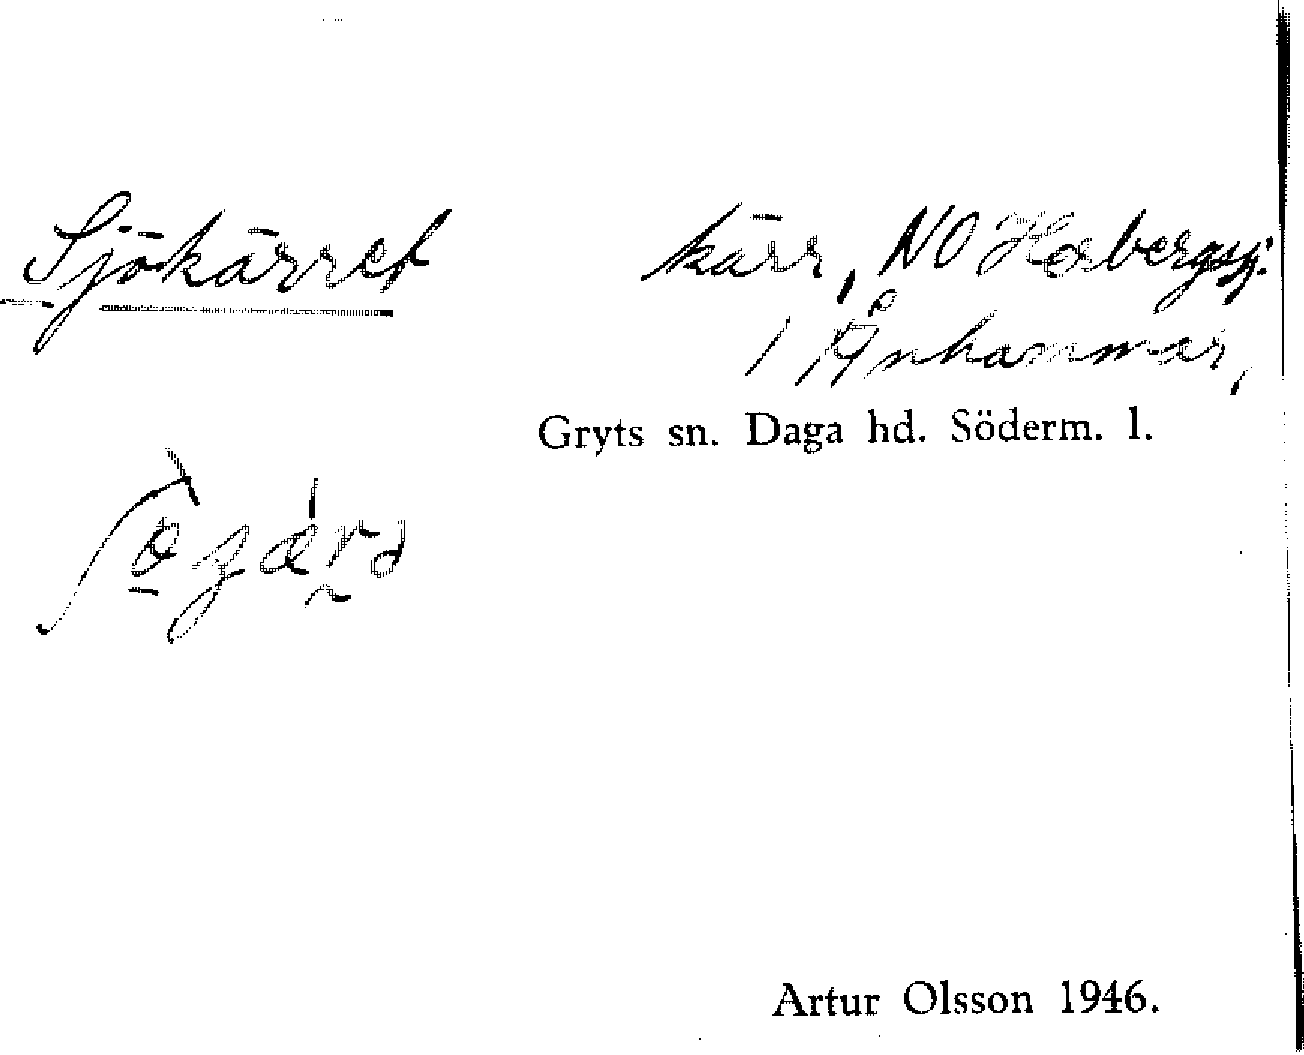 Sjökärret
kärr, NO Haxbergssj:
i Ånhammar,
Gryts sn. Daga hd. Söderm. l.
Artur Olsson 1946.